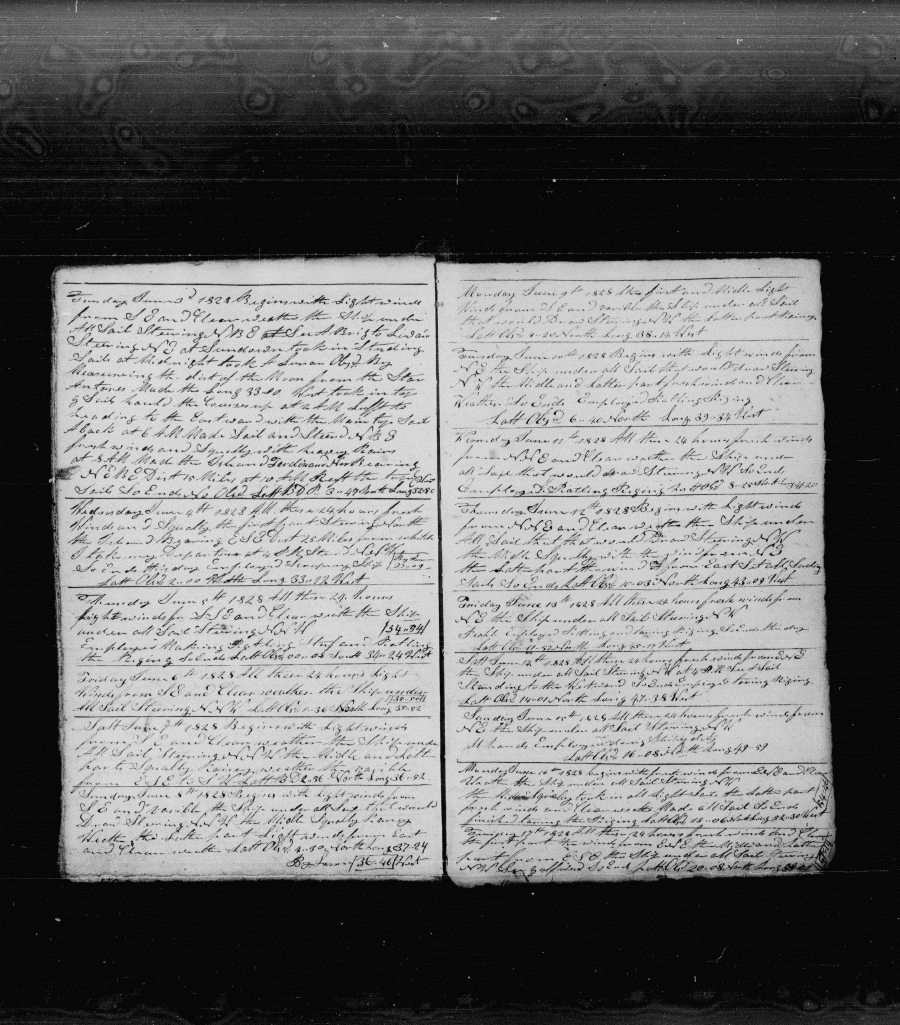 Tuesday June 3d 1828 Begins with Light winds
from S E and Clear weath the Ship under
All Sail Steering N B E at Saw A Brig to Leward
Steering N E at Sundown took in Studing
Sails at Midnight took A Lunar Obs By
Measureing the dist of the Moon from the Star
Antares Made the Long 33-40 West took in top
G Sails hauld the Courses up at 2 AM Luff to
heading to the Eastward with the Main top Sail
Aback at 6 AM Made Sail and Steerd N B E
fresh winds and Squaly with heavy Rains
at 8 AM Made the Island Ferdinan Nor Bearing
N E B E Dist 15 Miles at 10 AM
Sail So Ends No Obsd Latt D R 3-49 South Long 32-50
Wednesday June 4th 1828 All these 24 hours fresh
Winds and Squaly the first part Steering North
the Island Bearing E S E dist 25 Miles from which
I take my Departure at 4 PM
So Ends this day Employed Scraping Ship
Latt Obsd 2-00 South Long 33-22 West
Thursday June 5th 1828 All these 24 hours
Light winds from S S E and Clear with the Ship
under all Sail Steering N N W /34-34/
Employed Making and Ratling
the Riging So Ends Latt Obsd 00-06 South 34-24 West
Friday June 6th 1828 All these 24 hours Light
Winds from S E and Clear weather the Ship under
All Sail Steering N N W Latt Obsd 1-36 North Long 35-52
Satt June 7th 1828 Begins with Light winds
from S E and Clear weather the Ship under
All Sail Steering N N W the Middle and Latt
parts Squaly Rainy weather the winds
from E S E to S Latt Obsd 2-56 North Long 36-52
Sunday June 8th 1828 Begins with Light winds from
S E and variable the Ship under all Sail that would
Draw Steering N W the Middle Squaly Rainey
Weather the Latter part Light winds from East
and Clear weath Latt Obsd 4-50 North Long 37-24
By Lunar /36-46/ West
Monday June 9th 1828 the first and Midle Light
Winds from S E and varible the Ship under all Sail
that would Draw Steering N W the Latter part Rainey
Latt Obsd North Long 38-14 West
Tuesday June 10th 1828 Begins with Light winds from
N E the Ship under all Sail that would Draw Steering
N W the Midle and Latter part fresh winds and Clear
Weather So Ends Employed Ratling Riging
Latt Obsd 6-40 North Long 39-34 West
Wensday June 11th 1828 All these 24 hours fresh winds
from N N E and Clear weath the Ship under
all Sail that would Draw Steering N W So End
Employd Ratling Riging Latt Obsd 8-25 North
Thursday June 12th 1828 Begins with Light winds
from N N E and Clear weath the Ship under
All Sail that that would Draw Steering N W
the Midle Squaly with the wind from N E
the Latter part the wind from East Set all Studing
Sails So Ends Latt Obsd 10-08 North Long 43-09 West
Friday June 13th 1828 All these 24 hours fresh winds from
N E the Ship under all Sail Steering N W
Employed fitting and taring Riging So Ends this day
Latt Obsd 11-52 North Long 45-17 West
Satt June 14th 1828 All these 24 hours fresh winds from E N E
the Ship under all Sail Steering N W at 4 PM Saw A Sail
Standing to the Westward So Ends Employed taring Riging
Latt Obsd 14-01 North Long 47-38 West
Sunday June 15th 1828 All these 24 hours fresh winds from
N E the Ship under all Sail Steering N W
All hands Employed doing Ships duty
Latt Obsd 16-08 North Long 49-59
Monday June 16th 1828 begins with fresh winds from E N E and Clear
Weath the Ship under all Sail Steering N W
the Midle Squaly took in all Light Sail the Latter part
fresh winds and Clear weath Made all Sail So Ends
finished taring the Riging Latt Obsd 18-06 North Long 52-30 West
Tuesday 17th 1828 All these 24 hours fresh winds and Clear
the first part the winds from E N E the Midle and Latter
part from E S E the Ship under all Sail Steering
N W So Ends Latt Obsd 20-08 North Long